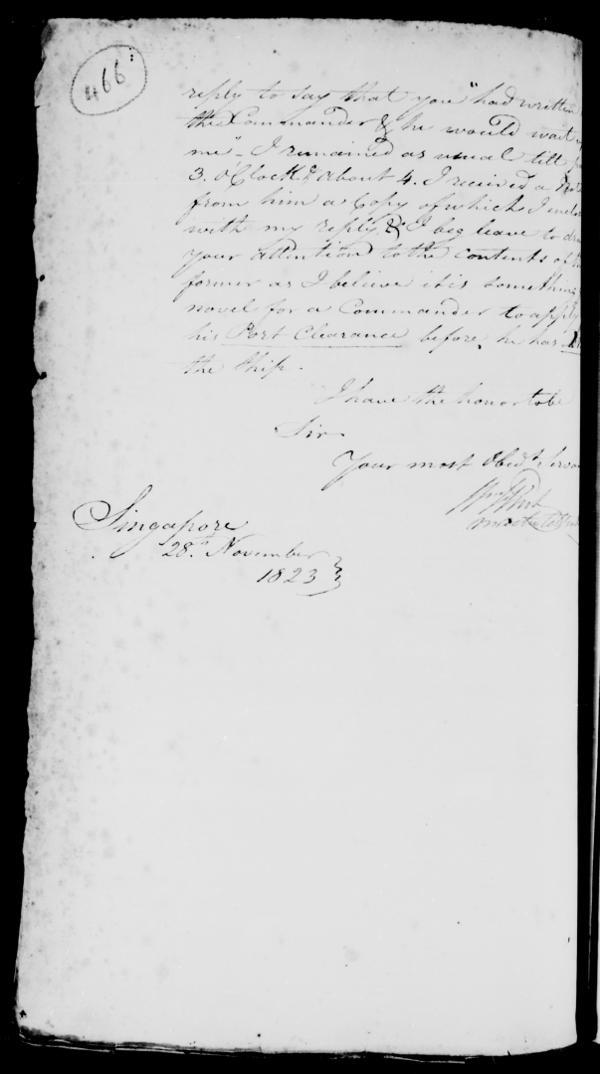 466
reply to say that you "had written
the Commander & he would wait
me" - I remained as usual till
3. oClock & about 4. I received a Note
from him a Copy of which I enclo
with my reply, & I beg leave to dra
your attention to the contents of
former as I believe it is something
novel for a Commander to apply
his Port Clearance before he has
the Ship.
I have the honor to be
Sir
Your most Obedt. Serva
Singapore
28th. November
1823